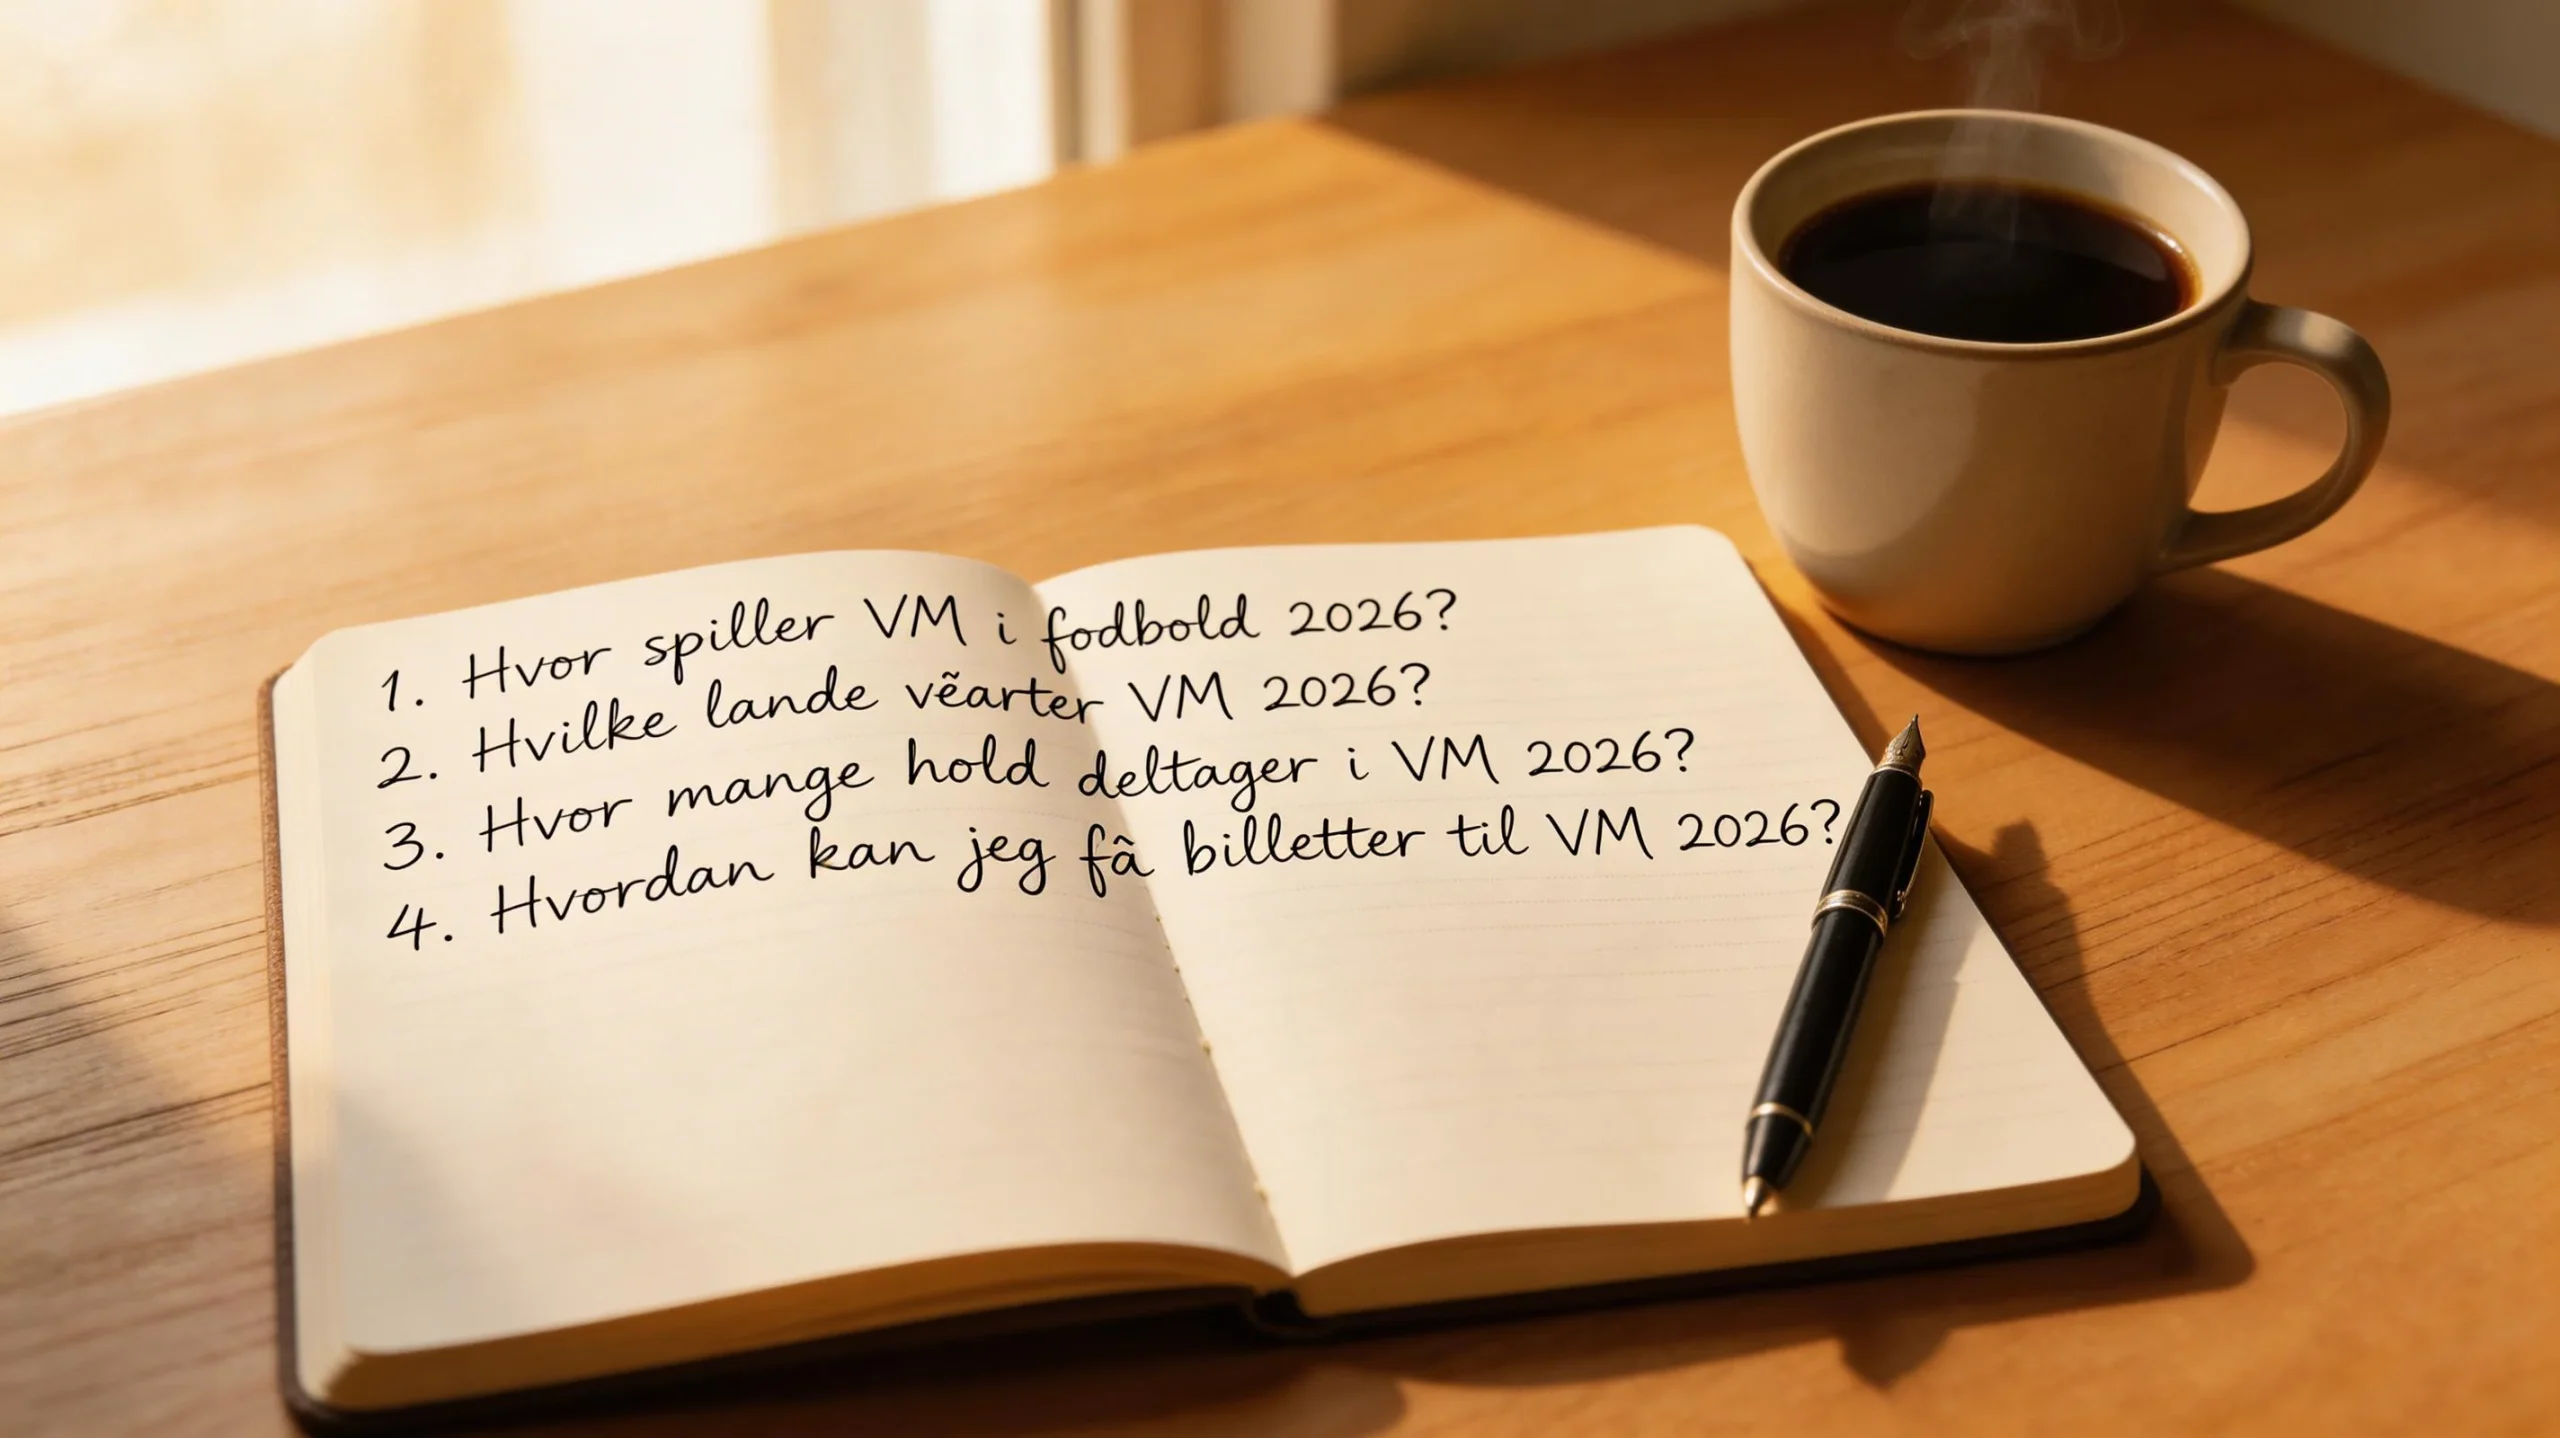 1. Hvor spiller VM i fodbold 2026?
2. Hvilke lande vẽarter VM 2026?
3. Hvor mange hold deltager i VM 2026?
4. Hvordan kan jeg fã billetter til VM 2026?